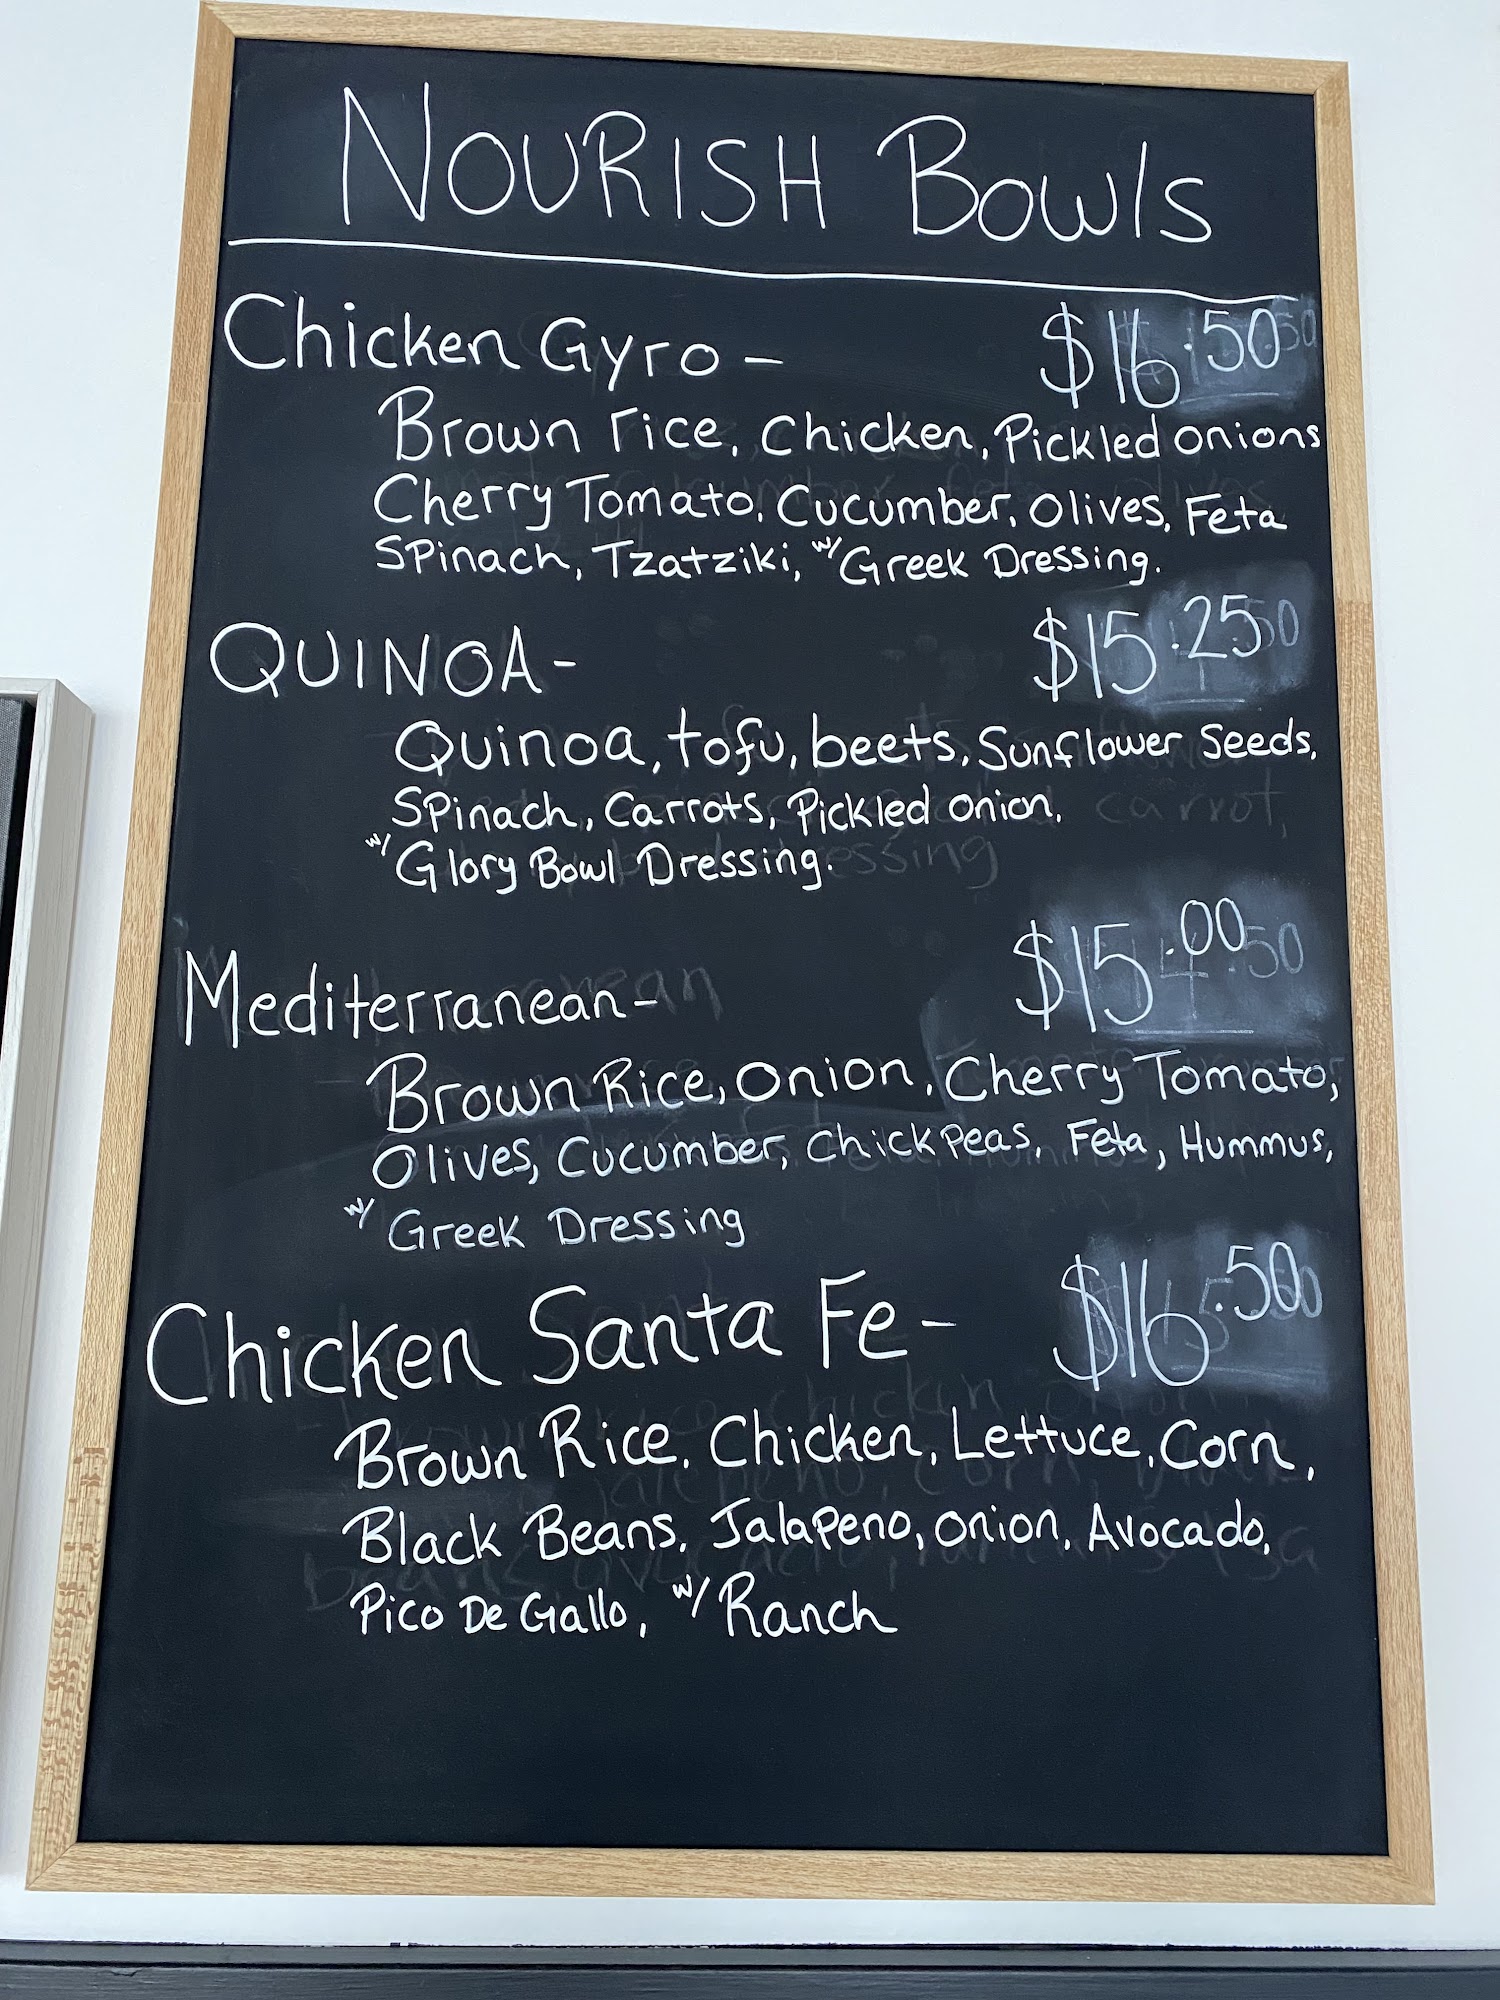 NOURISH BOWLS
Chicken Gyro - $16.50
Brown rice, Chicken, Pickled onions
Cherry Tomato, Cucumber, Olives, Feta
Spinach, Tzatziki, w/ Greek Dressing.
QUINOA - $15.25
Quinoa, tofu, beets, Sunflower Seeds,
Spinach, Carrots, Pickled onion,
w/ Glory Bowl Dressing.
Mediterranean - $15.00
Brown Rice, Onion, Cherry Tomato,
Olives, Cucumber, Chickpeas, Feta, Hummus,
w/ Greek Dressing
Chicken Santa Fe - $16.50
Brown Rice, Chicken, Lettuce, Corn,
Black Beans, Jalapeno, onion, Avocado,
Pico De Gallo, w/ Ranch